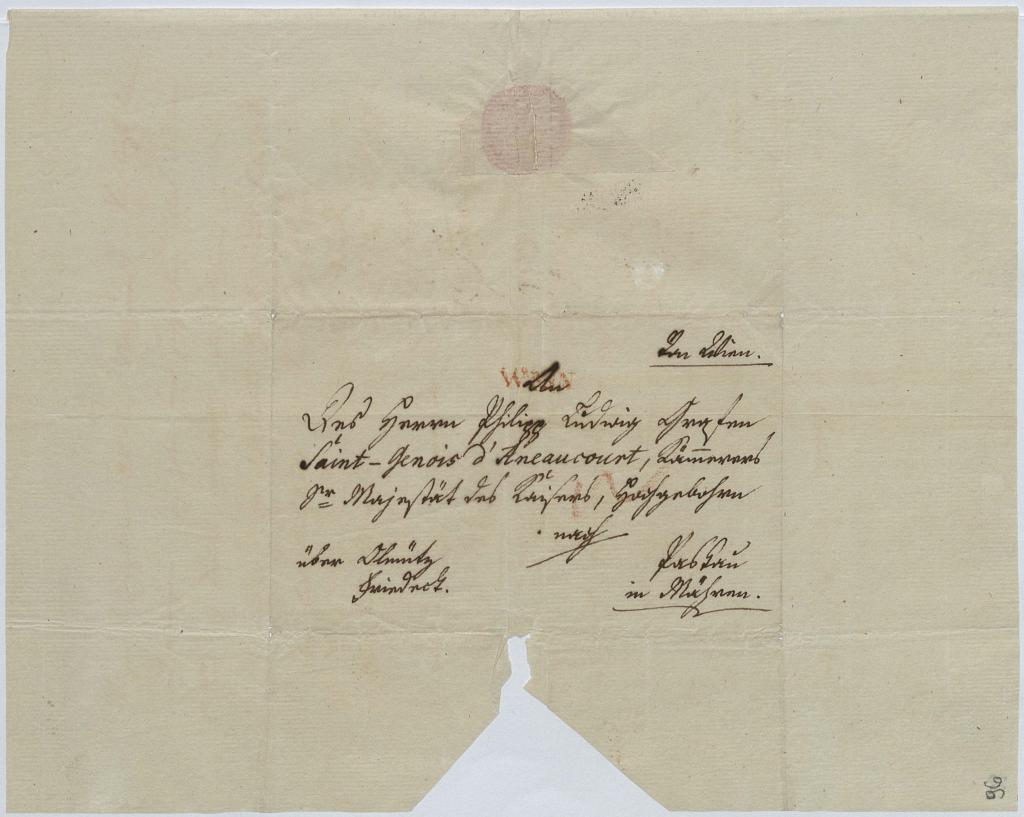 Von Wien.
WIEN
An
Des Herrn Philipp Ludwig Grafen
Saint-Genois d'Aneaucourt, Kam̅erers
Sr Majestät des Kaisers, Hochgebohrn
nach
über Olmütz
Friedeck.
Paskau
in Mähren.
96